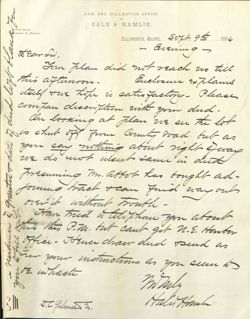 LAW AND COLLECTION OFFICE
OF
HALE & HAMLIN.
ELLSWORTH, MAINE, Sept. 9th
Evening
Dear Sir,
Your plan did not reach us till
this afternoon. Enclosure explains
title is satisfactory. Please
compare description with your deed.
On looking at plan we see the lot
is shut off from County road but as
you say nothing about right of way
we do not insert same in deed
presuming Mr. Abbot has bought ad-
joining tract & can find way out
over it without trouble.
Have tried to telephone you about
this this P.M. but can't get N.E. Harbor
office. Hence draw deed & send as
your instructions as you seem to
be in haste
Yrs truly
Hale & Hamlin